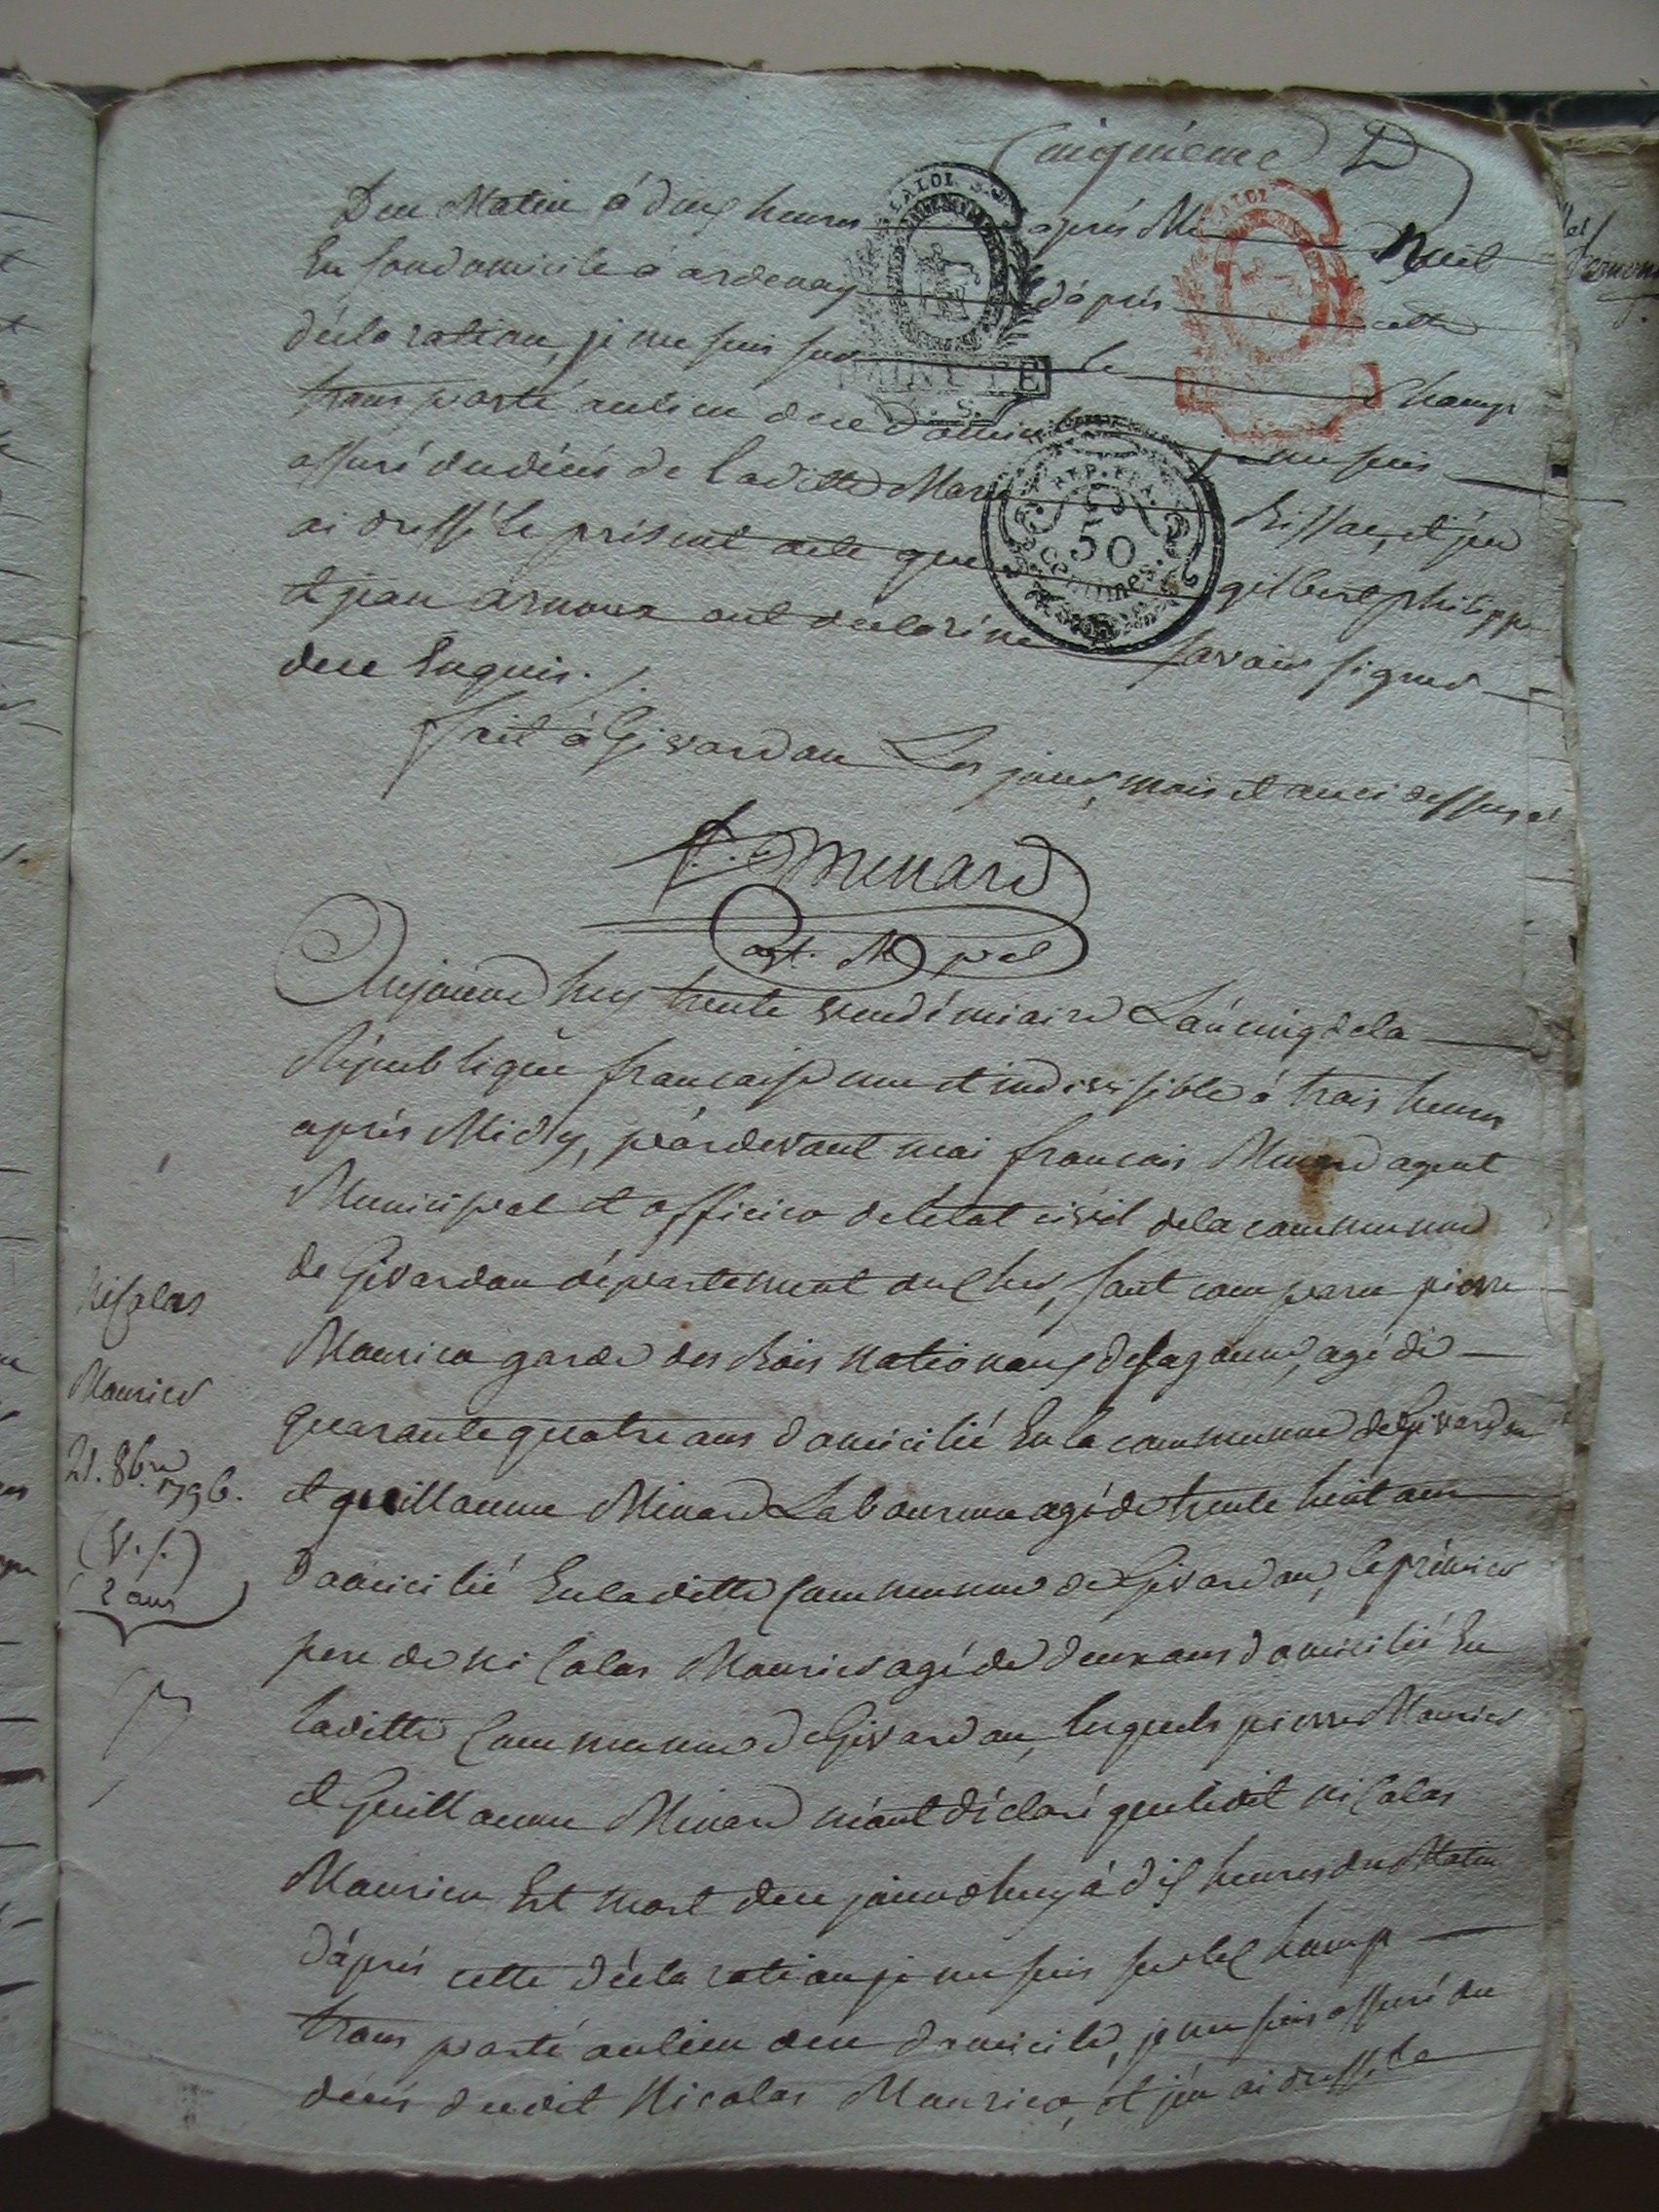 Cinquieme
Du Matin á deux heures après Mi Nuit
En son domicile á ardenay d'après cette
déclaration, je me suis sur le Champ
transporté au lieu de ce domicile je me suis
assuré du décés de laditte Marie Bissac, et j'en
ai dressé le présent acte que gilbert philippe
et jean arnoux ont declaré ne savoir signer
de ce Enquis.
fait á Givardon Les jour, mois et an ci dessus
f. Menard
agt. Mpal
Aujourd huy trente vendémiaire L'an cinq de la
République francaise une et indivisible á trois heures
après Midy, pardevant moi francois Menard agent
Municipal et officier de letat civil de la commune
de Givardon département du Cher, sont comparu pierre
Maurice garde des Bois Nationaux de sagonne, agé de
quarante quatre ans domicilié En la commune de Givardon
et guillaume Minard Laboureur agé de trente huit ans
domicilié En laditte Commune de Givardon, le prémier
pere de nicolas Maurice agé de deux ans domicilié En
laditte Commune de Givardon, lesquels pierre Maurice
et Guillaume Minard m'ont déclaré que ledit nicolas
Maurice Est mort de ce jourdhuy á dix heures du Matin
d'áprés cette déclaration je me suis sur le Champ
transporté au lieu de ce domicile, je me suis assuré du
décés dudit Nicolas Maurice, et j'en ai dressé le
Nicolas
Maurice
21. 8bre
1796.
(V. s.)
2 ans
LA LOI
REP. FRA.
50
centimes.
LA LOI